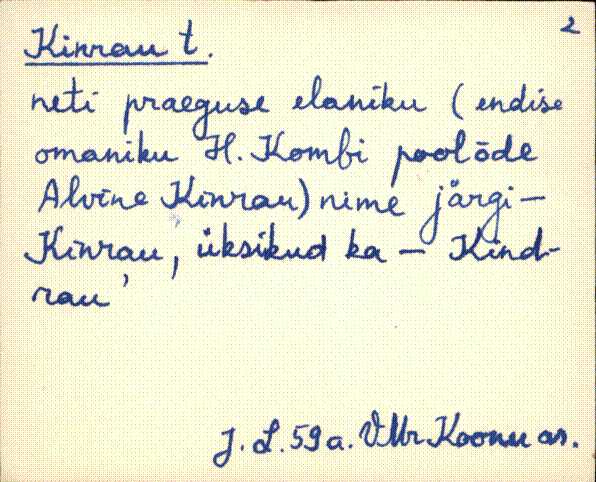 2
Kinrau t.
neti praeguse elaniku (endise
omaniku H. Kombi poolõde
Alvine Kinrau) nime järgi –
Kinrau, üksikud ka – Kind-
rau
J. L. 59 a. VMr Koonu as.